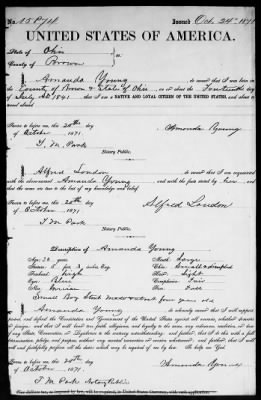 No. 15948 Issued Oct. 24th 1871
UNITED STATES OF AMERICA.
State of Ohio
County of Brown
I Amanda Young, do swear that I was born in
the County of Brown & State of Ohio, on or about the Fourteenth day
of July AD 1841; that I am a NATIVE AND LOYAL CITIZEN OF THE UNITED STATES, and about
Sworn to before me, this 20th day
of October 1871 Amanda Young
T. M. Park
Notary Public.
I Alfred London, do swear that I am acquainted
with the above-named Amanda Young and with the facts stated by her, and
that the same are true to the best of my knowledge and belief.
Sworn to before me, this 20th day
of October 1871. Alfred London
T. M. Park
Notary Public.
Description of Amanda Young
Age: 30 years Mouth: Large
Stature: 5 feet 3 inches, Eng. Chin: Small & dimpled
Forehead: High Hair: Light
Eyes: Blue Complexion: Fair
Nose: Face:
four years old
I, Amanda Young, do solemnly swear that I will support,
protect, and defend the Constitution and Government of the United States against all enemies, whether domestic
or foreign; and that I will bear true faith, allegiance, and loyalty to the same, any ordinance, resolution, or law
of any State, Convention, or Legislature to the contrary notwithstanding; and further, that I do this with a full
determination, pledge, and purpose, without any mental reservation or evasion whatsoever; and further, that I
will well and faithfully perform all the duties which may be required of me by law. So help me God.
Sworn to before me, this 20th day
of October 1871 Amanda Young
T. M. Park Notary Public.